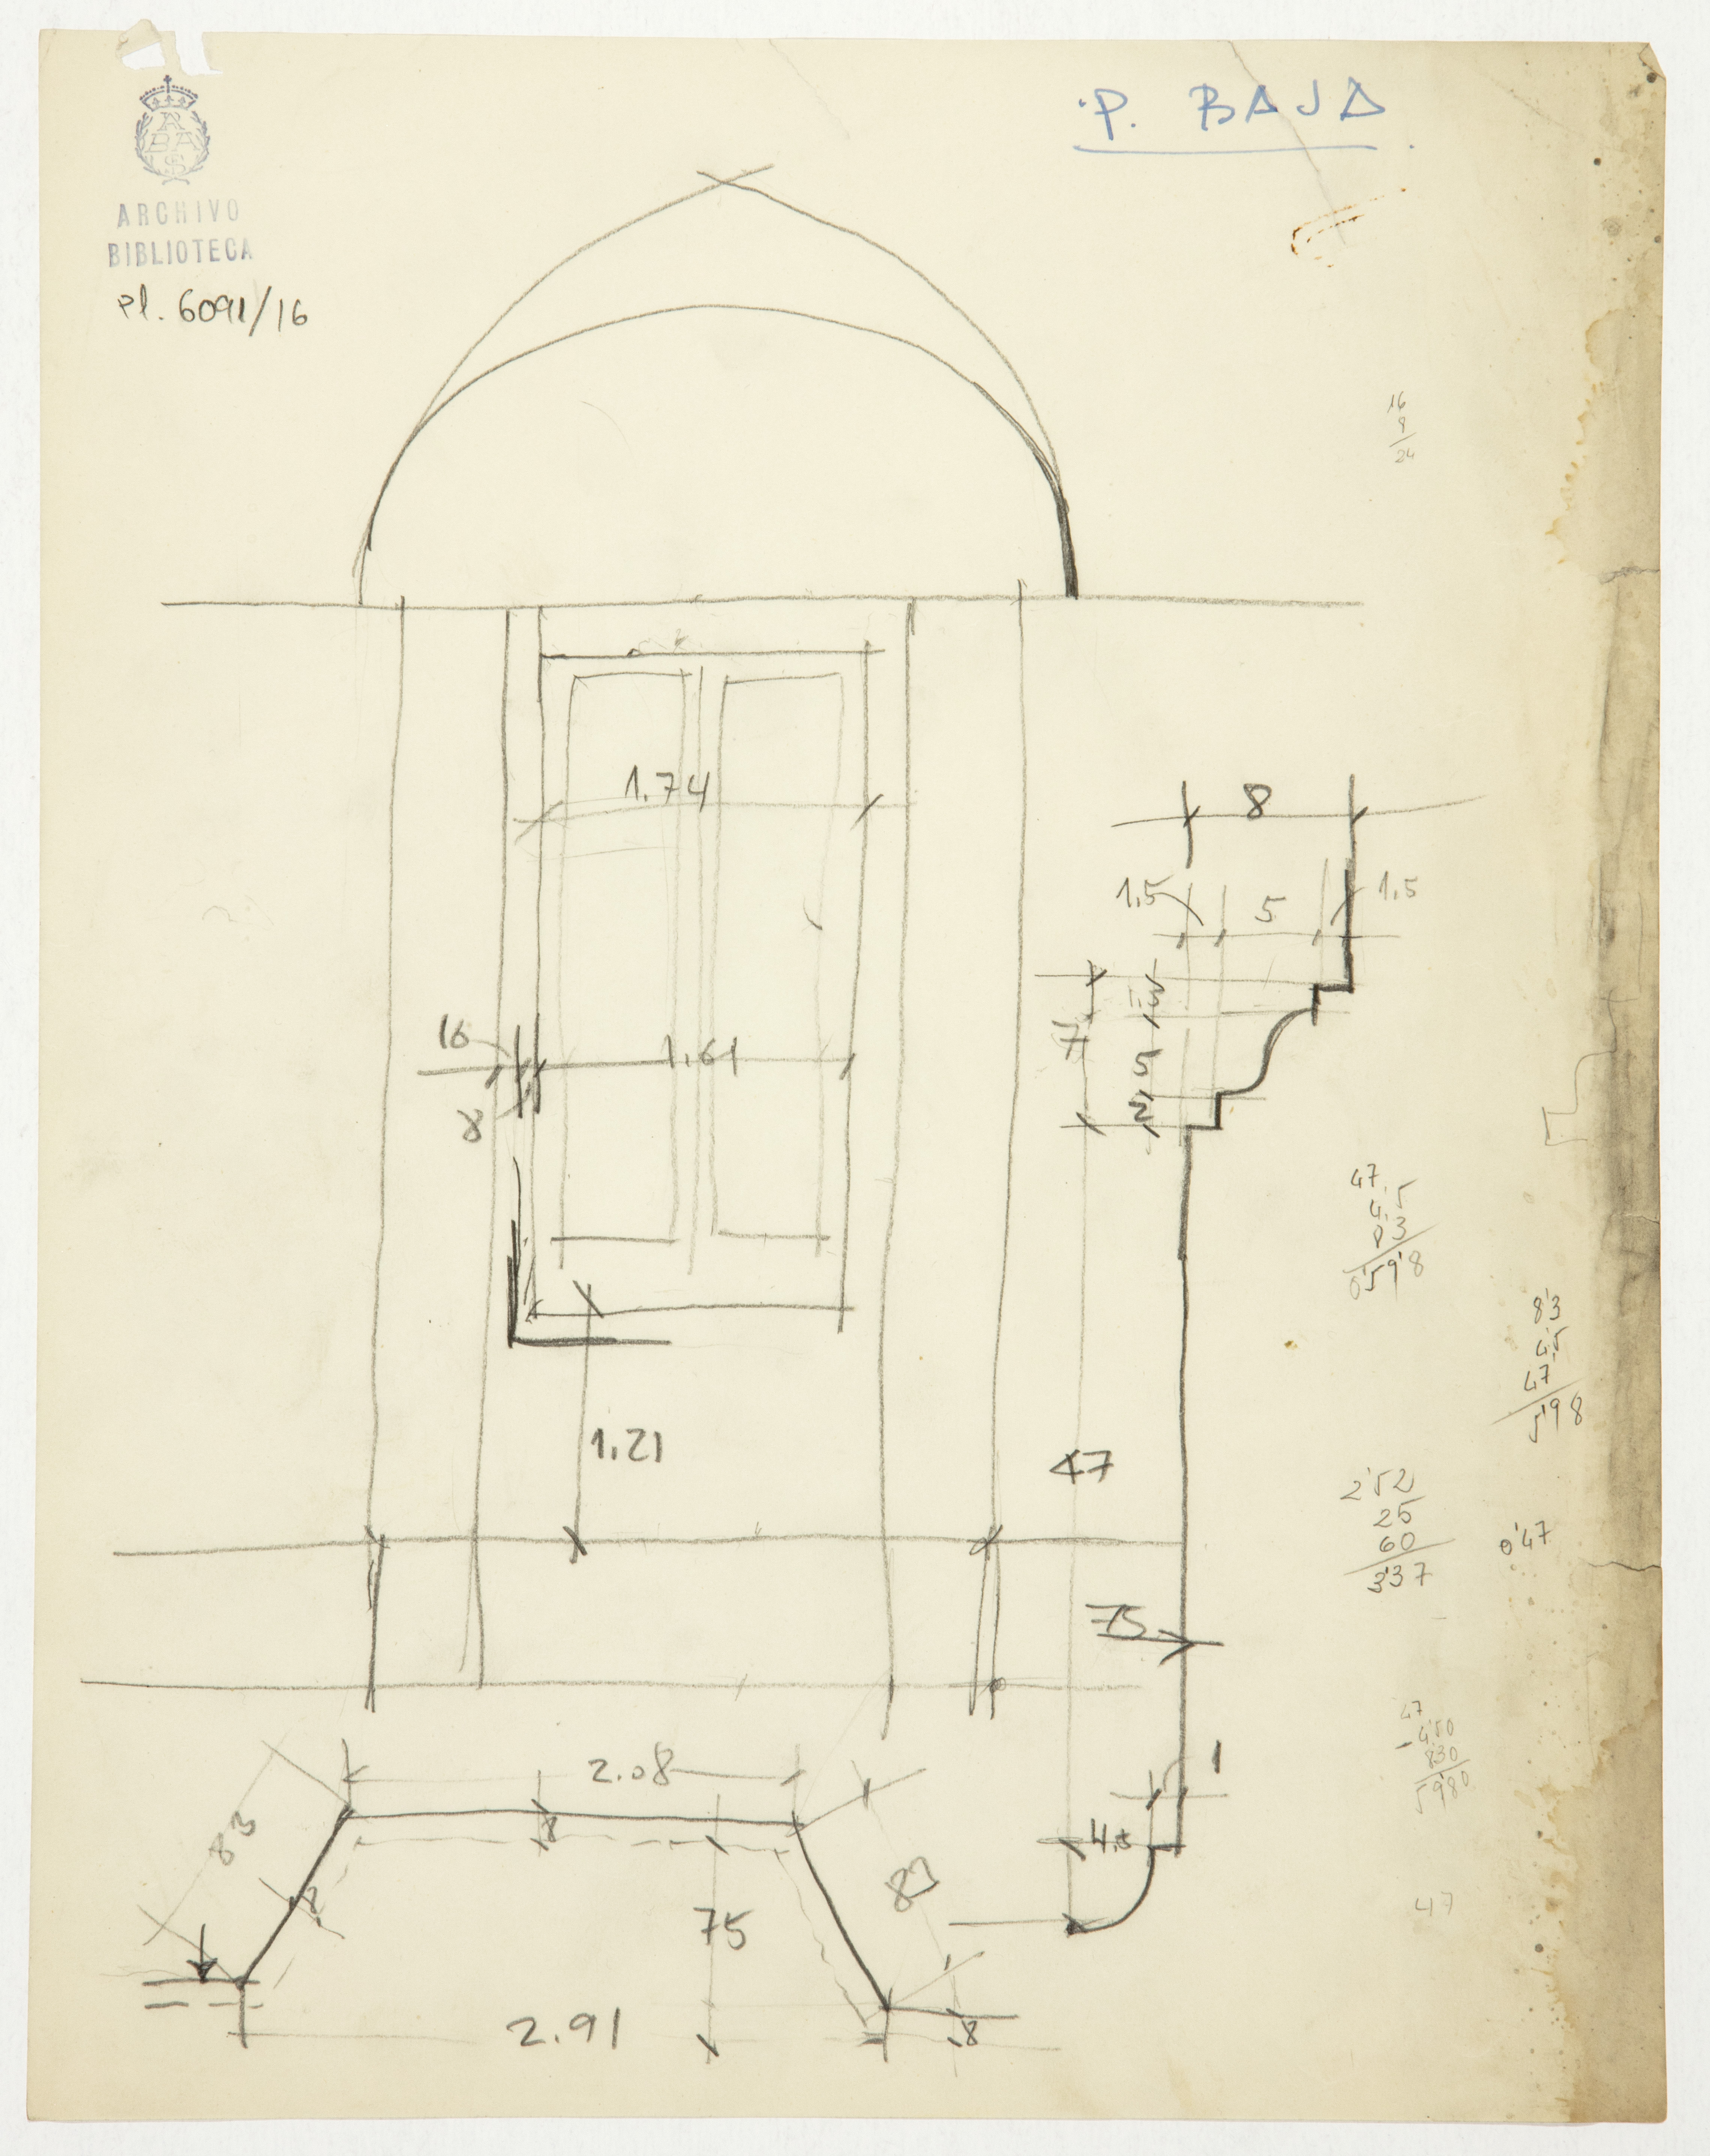 P. BAJA
RABASF
ARCHIVO
BIBLIOTECA
Pl. 6091/16
16
8
24
1.74
8
1.5
5
1.5
16
1.61
8
7
5
2
47
4,5
83
0'598
8'3
4,5
47
5'98
1.21
47
2'52
25
60
3'37
0'47
75
47
4'50
830
5980
2.08
1
8
83
4.5
8
83
75
47
2.91
8